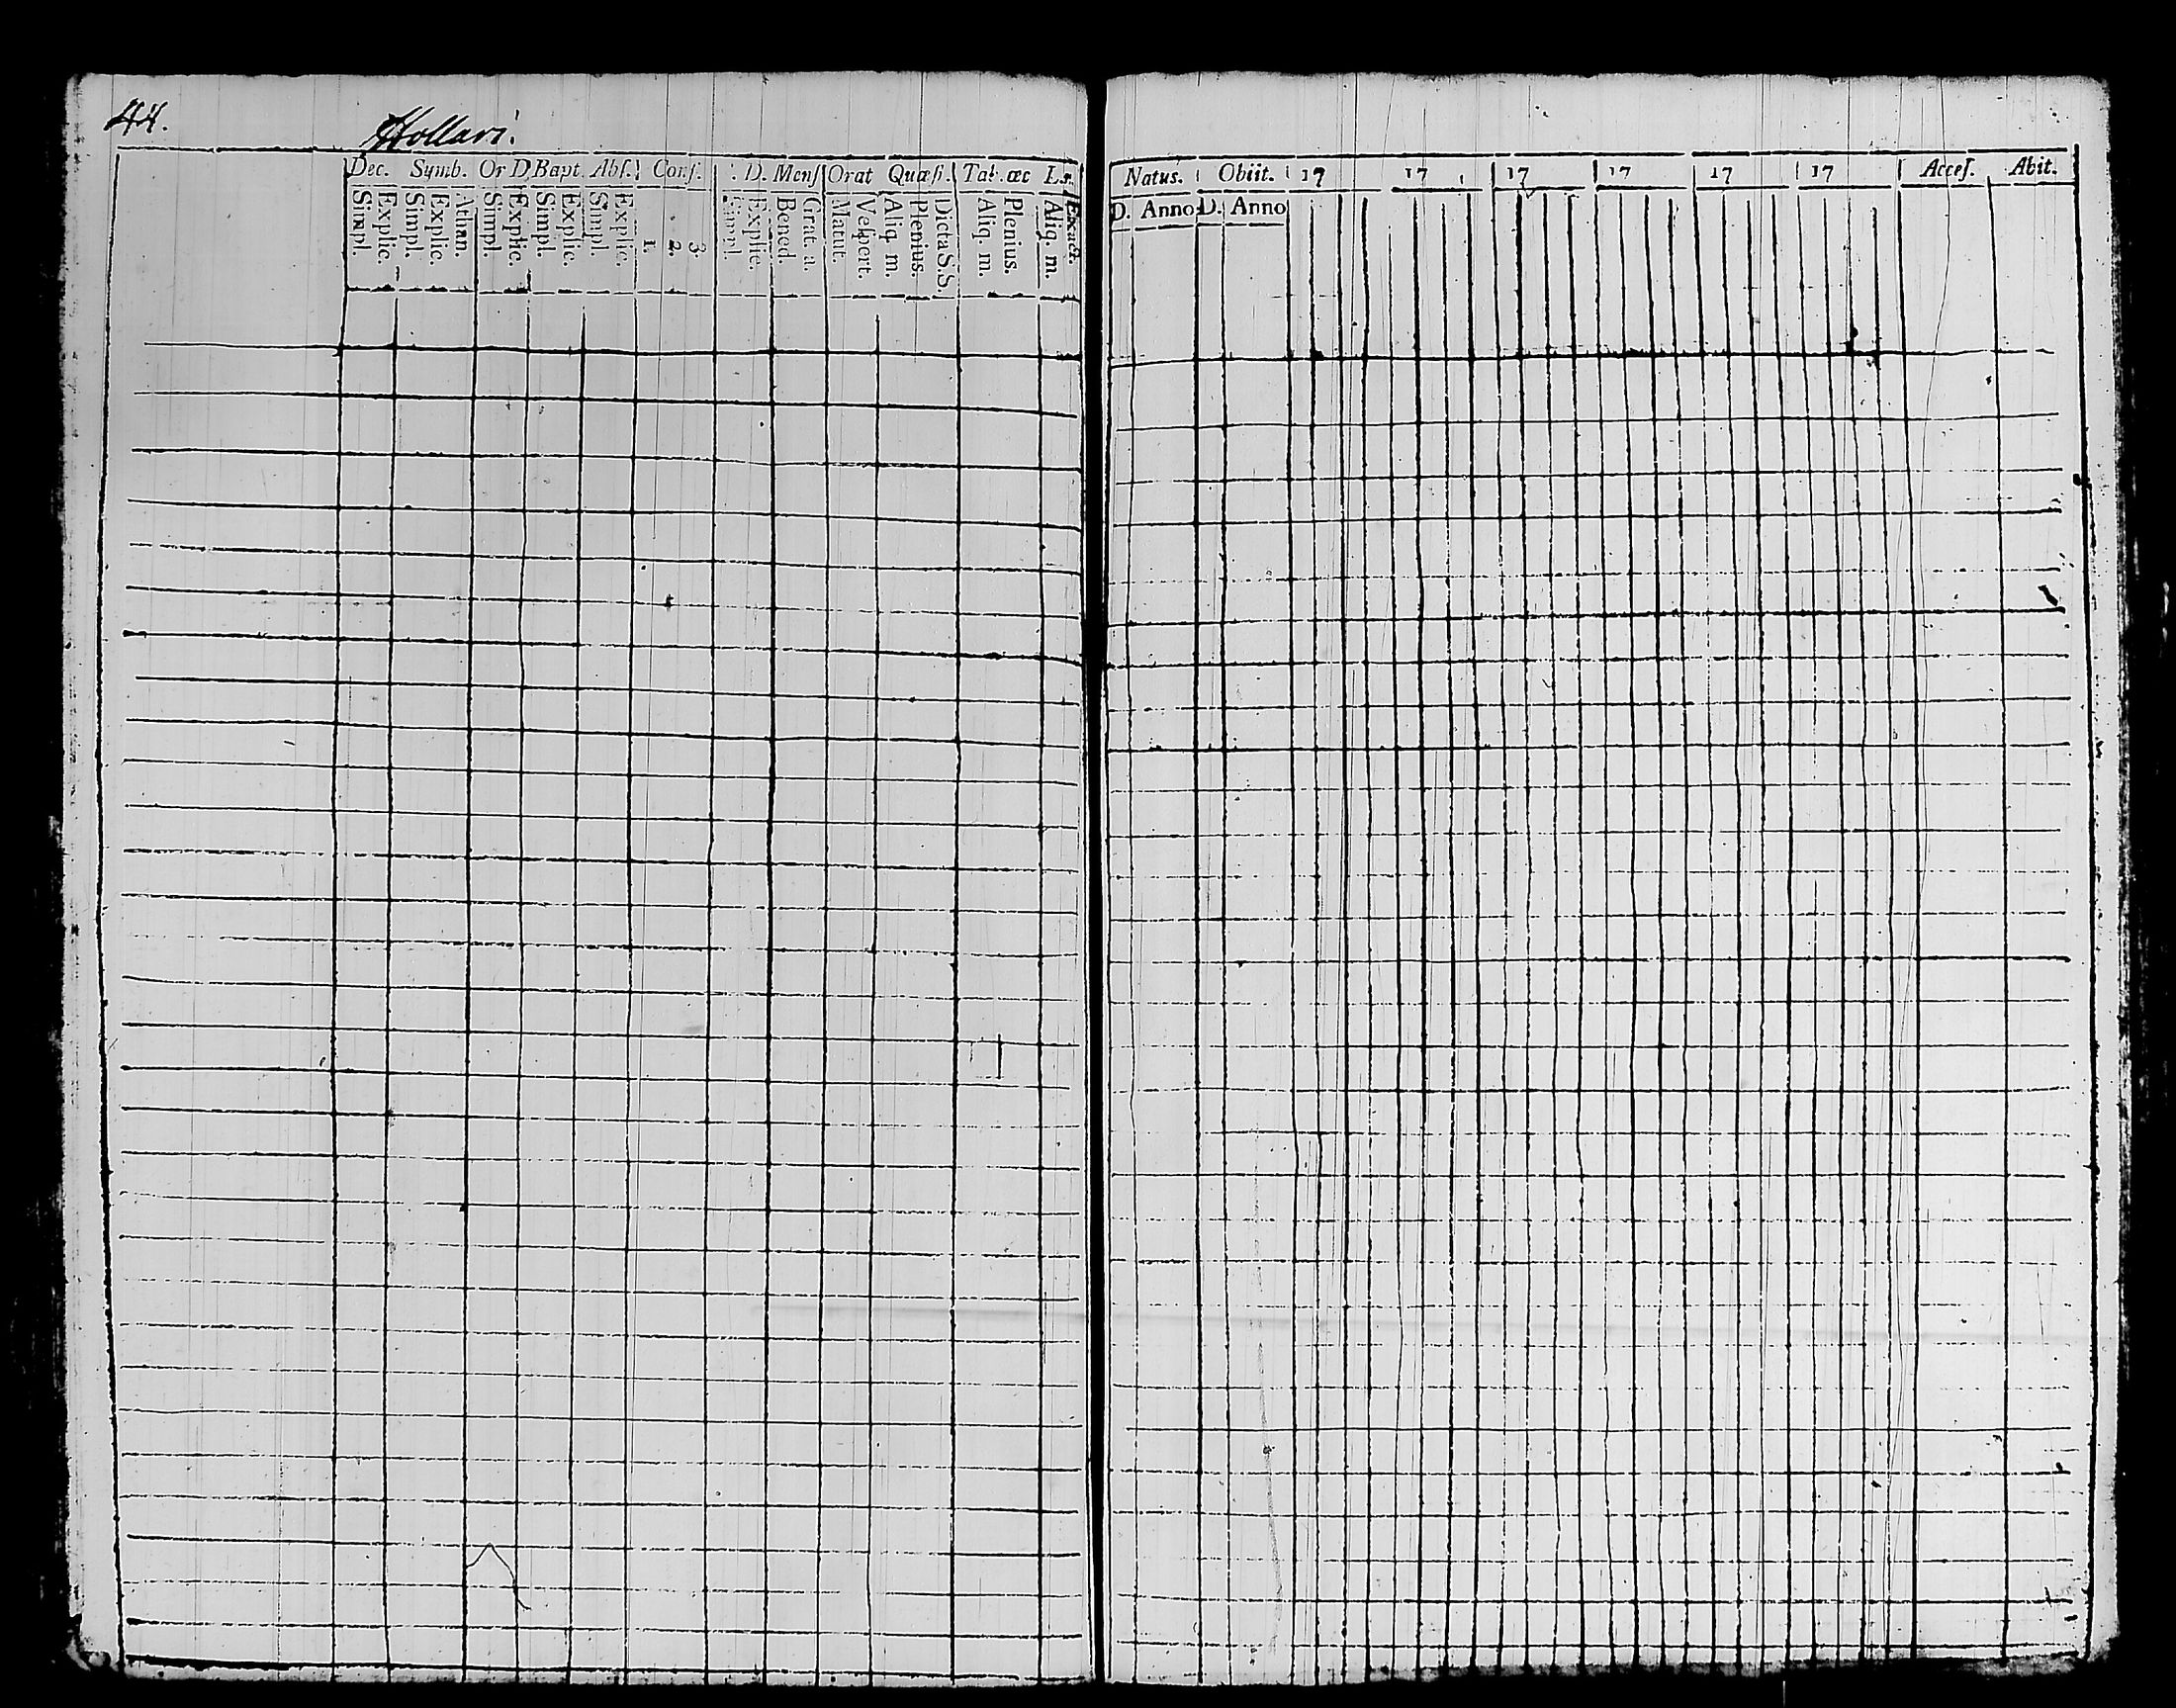 44.
Hollari.
Dec. Symb. Or D Bapt. Abſ. Conf. D. Menſ Orat Quæſi. Tab. œc L.
Simpl. Explic. Simpl. Explic. Athan. Simpl. Explic. Simpl. Explic. Simpl. Explic. 1. 2. 3. Simpl. Explic. Bened. Grat. a. Matut. Veſpert. Aliq. m. Plenius. Dicta S.S. Aliq. m. Plenius. Aliq. m. Exact.
Natus. Obiit. 17 17 17 17 17 17 Acceſ. Abit.
D. Anno D. Anno